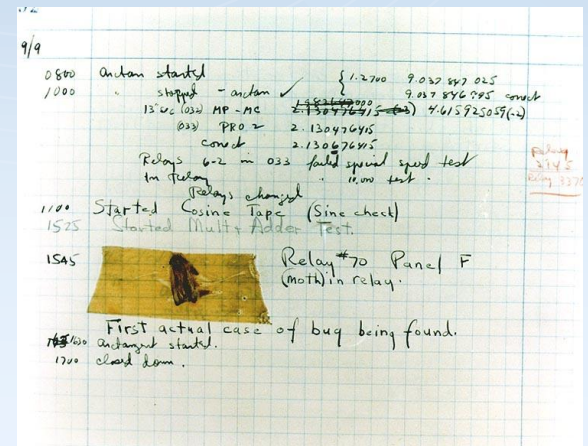 9/9
0800 Antan started
1000 " stopped - antan ✓ { 1.2700 9.037 847 025
9.037 846 995 correct
13"uc (032) MP - MC 2.130476415 (-3) 4.615925059 (-2)
(033) PRO 2 2.130476415
correct 2.130676415
Relays 6-2 in 033 failed special speed test
In Relay " 10,000 test.
Relays changed
Relay
2145
Relay 3370
1100 Started Cosine Tape (Sine check)
1525 Started Mult + Adder Test.
1545 Relay #70 Panel F
(moth) in relay.
First actual case of bug being found.
1630 antangent started.
1700 closed down.